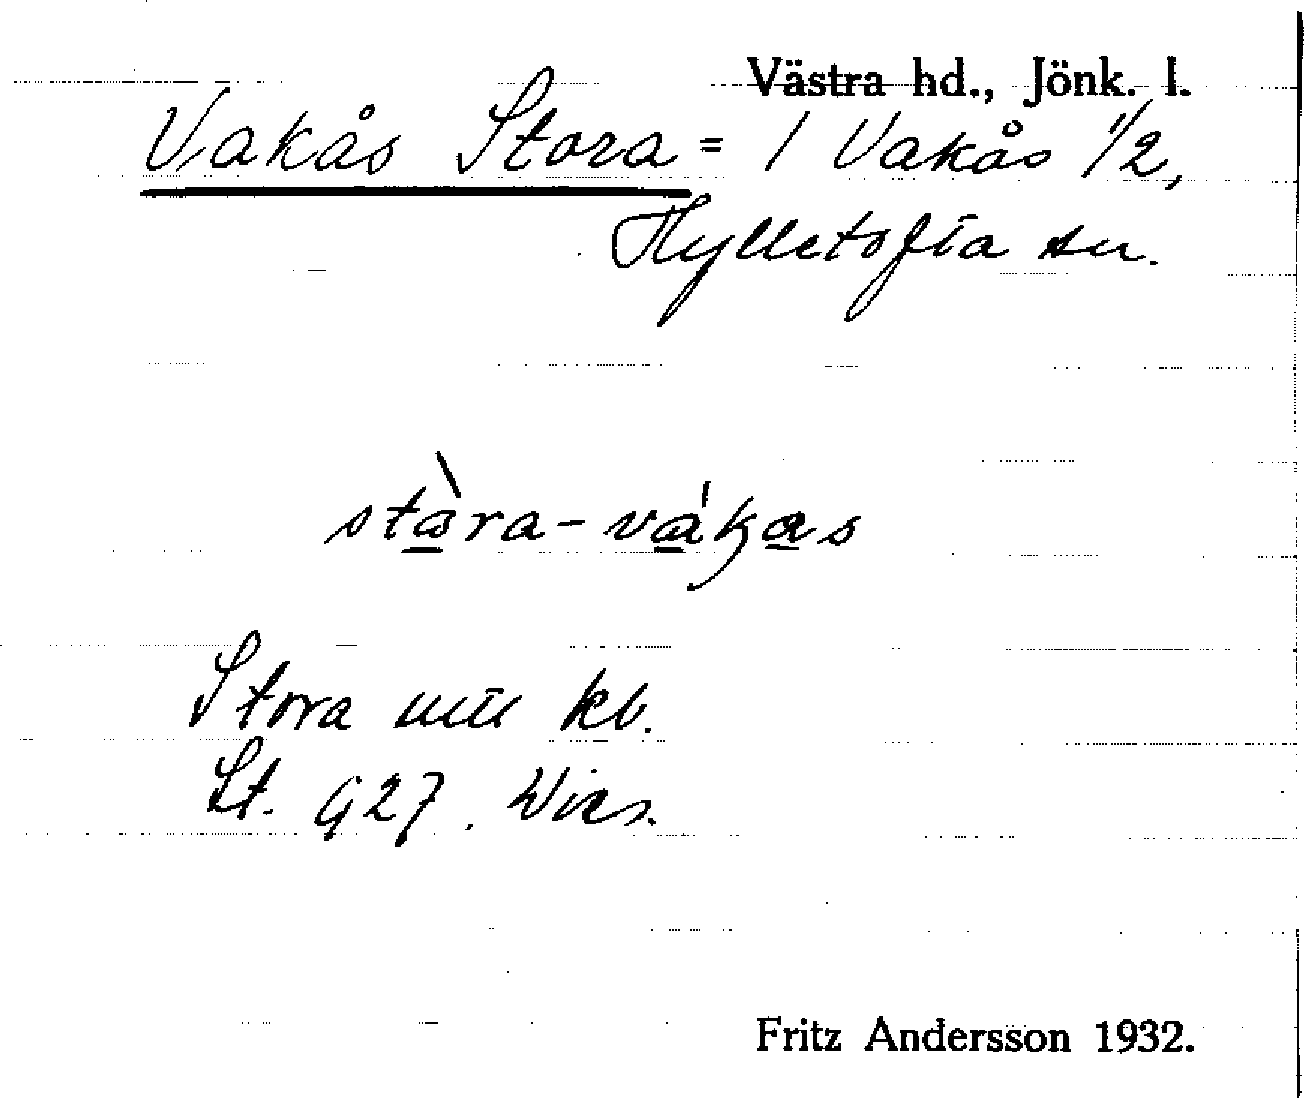 Västra hd., Jönk. l.
Vakås Stora = / Vakås 1/2,
Hylletofta sn.
stàra-vákas
Stora
kb.
St. 927.
Fritz Andersson 1932.